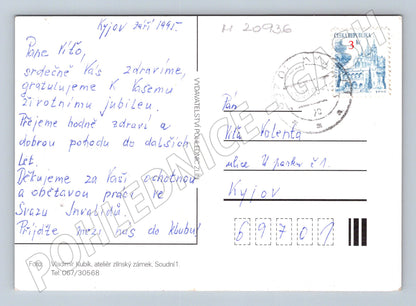 Kyjov září 1995.
M 20936
Pane Víťo,
srdečně Vás zdravíme,
gratulujeme k Vašemu
životnímu jubileu.
Přejeme hodně zdraví a
dobrou pohodu do dalších
let.
Děkujeme za Vaši ochotnou
a obětavou práci ve
Svazu Invalidů.
Přijďte mezi nás do klubu!
Foto: Vladimír Kubík, ateliér zlínský zámek, Soudní 1.
Tel. 067/30568
VYDAVATELSTVÍ
ČESKÁ REPUBLIKA
3
Pán
Víťa Valenta
ulice U parku č 1.
Kyjov
69701
POHLEDNICE